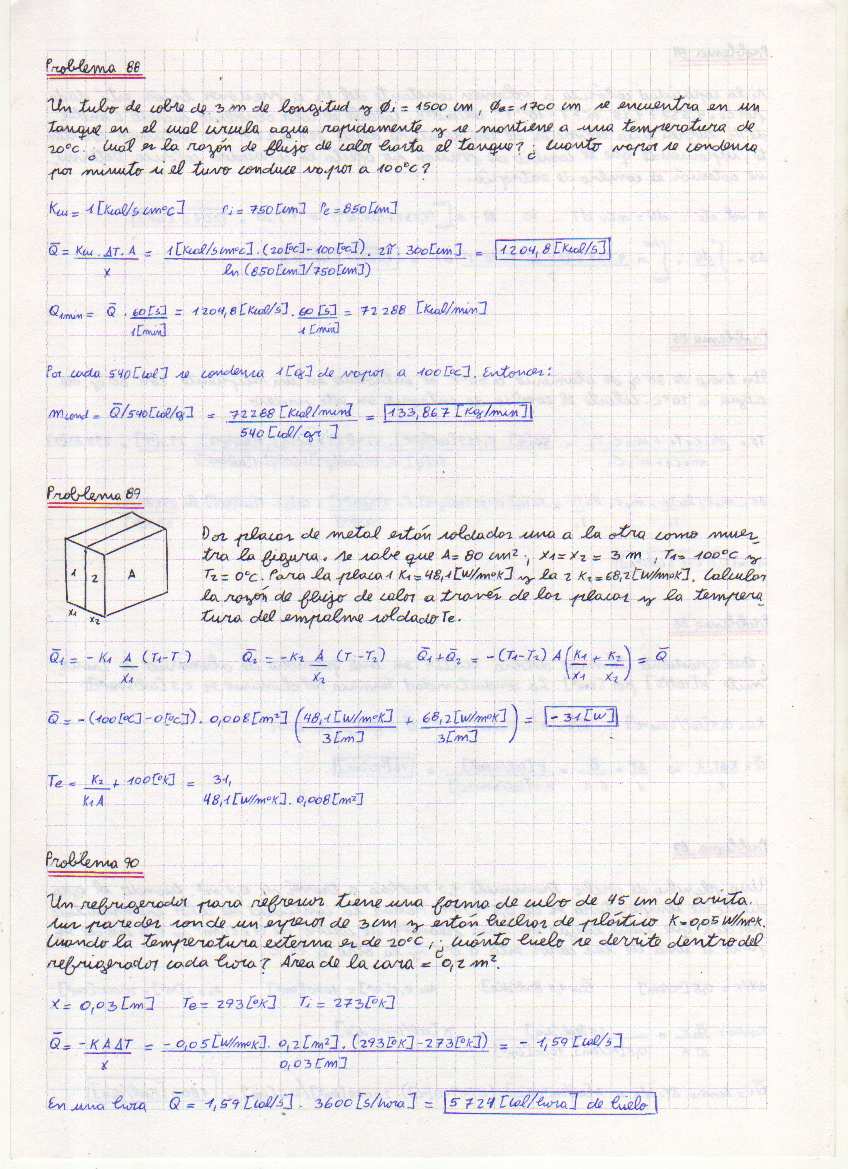 Problema 88
Un tubo de cobre de 3 m de longitud y Øi = 1500 cm, Øe = 1700 cm se encuentra en un
tanque en el cual circula agua rapidamente y se mantiene a una temperatura de
20°C. ¿Cual es la razón de flujo de calor hasta el tanque? ¿Cuanto vapor se condensa
por minuto si el tuvo conduce vapor a 100°C?
Kcu = 1 [Kcal/s cm°C] ri = 750 [cm] re = 850 [cm]
Q̄ = Kcu . ΔT . A / x = 1 [Kcal/s cm°C] . (20[°C] - 100[°C]) . 2π . 300 [cm] / ln (850[cm]/750[cm]) = 1204,8 [Kcal/s]
Q1min = Q̄ . 60[s] / 1[min] = 1204,8 [Kcal/s] . 60[s] / 1[min] = 72288 [Kcal/min]
Por cada 540 [cal] se condensa 1 [g] de vapor a 100 [°C]. Entonces:
mcond = Q̄/540[cal/g] = 72288 [Kcal/min] / 540 [cal/gr] = 133,867 [Kg/min]
Problema 89
1 2 A
x1 x2
Dos placas de metal están soldadas una a la otra como mues-
tra la figura. se sabe que A = 80 cm², x1 = x2 = 3 m, T1 = 100°C y
T2 = 0°C. Para la placa 1 K1 = 48,1 [W/m°K] y la 2 K2 = 68,2 [W/m°K]. Calcular
la razón de flujo de calor a través de las placas y la tempera-
tura del empalme soldado Te.
Q̄1 = -K1 A/x1 (T1-T) Q̄2 = -K2 A/x2 (T-T2) Q̄1+Q̄2 = -(T1-T2) A (K1/x1 + K2/x2) = Q̄
Q̄ = -(100[°C] - 0[°C]) . 0,008 [m²] (48,1 [W/m°K] / 3[m] + 68,2 [W/m°K] / 3[m]) = -31 [W]
Te = K2 / K1 A + 100[°K] = 31, / 48,1 [W/m°K] . 0,008 [m²]
Problema 90
Un refrigerador para refrescos tiene una forma de cubo de 45 cm de arista.
sus paredes son de un espesor de 3 cm y están hechas de plástico K = 0,05 W/m°K.
Cuando la temperatura externa es de 20°C, ¿cuánto hielo se derrite dentro del
refrigerador cada hora? Area de la cara = 0,2 m².
x = 0,03 [m] Te = 293 [°K] Ti = 273 [°K]
Q̄ = -K A ΔT / x = -0,05 [W/m°K] . 0,2 [m²] . (293[°K] - 273[°K]) / 0,03 [m] = -1,59 [cal/s]
En una hora Q̄ = 1,59 [cal/s] . 3600 [s/hora] = 5724 [cal/hora] de hielo